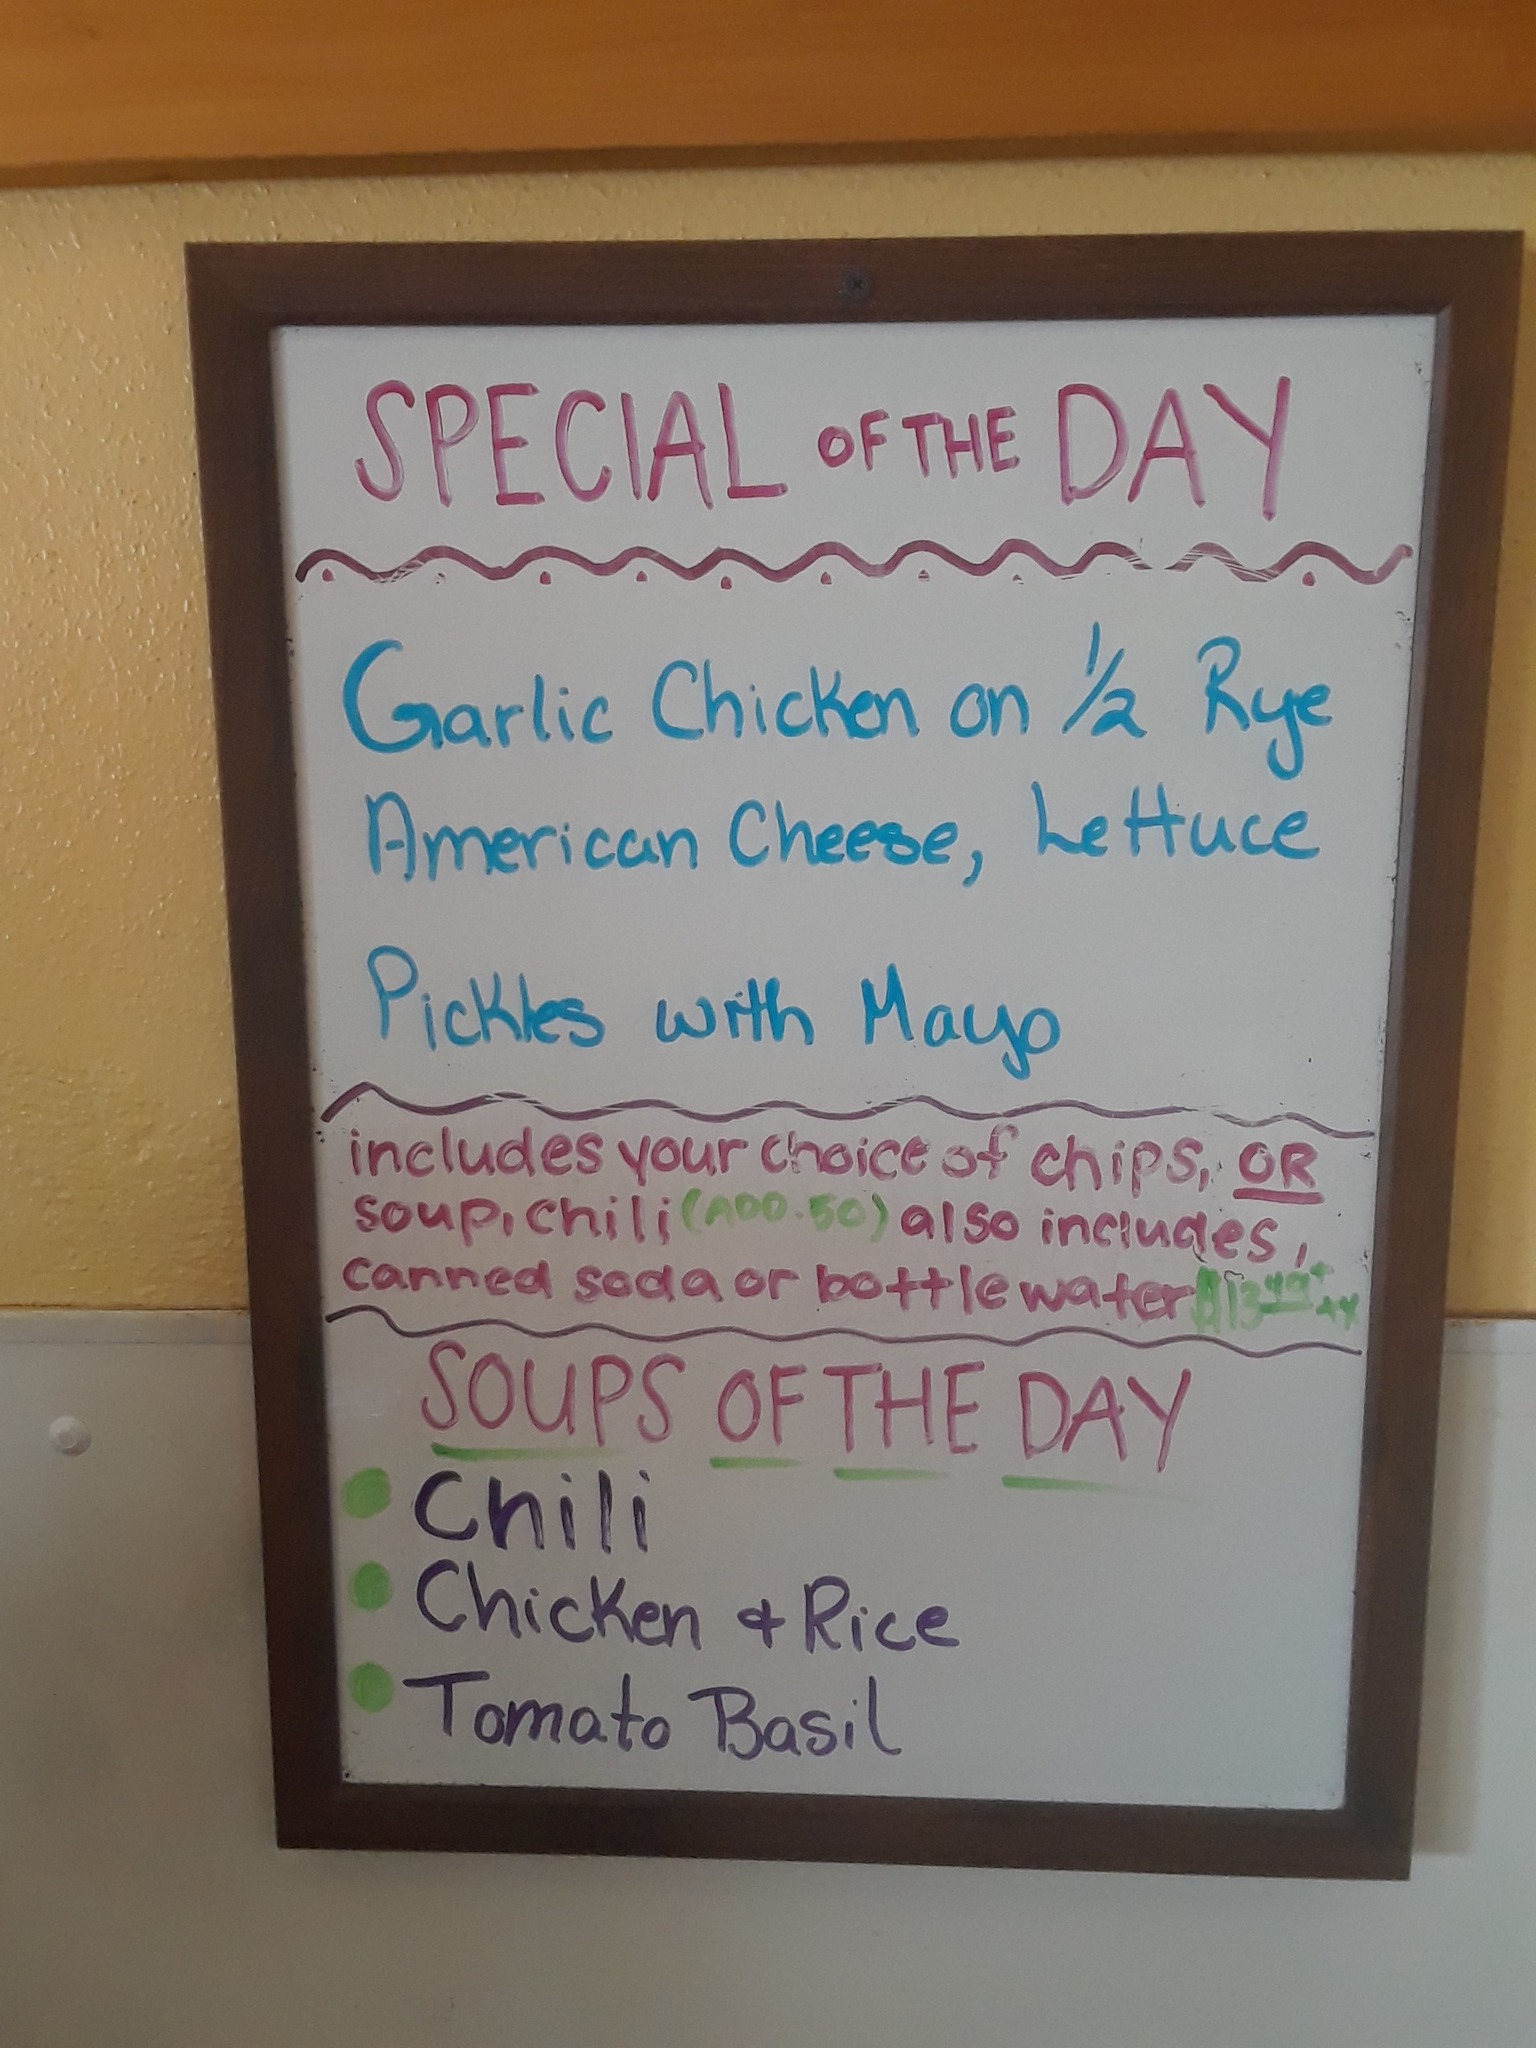 SPECIAL OF THE DAY
Garlic Chicken on 1/2 Rye
American Cheese, Lettuce
Pickles with Mayo
includes your choice of chips, OR
soup, chili (ADD .50) also includes,
canned soda or bottle water
SOUPS OF THE DAY
Chili
Chicken & Rice
Tomato Basil